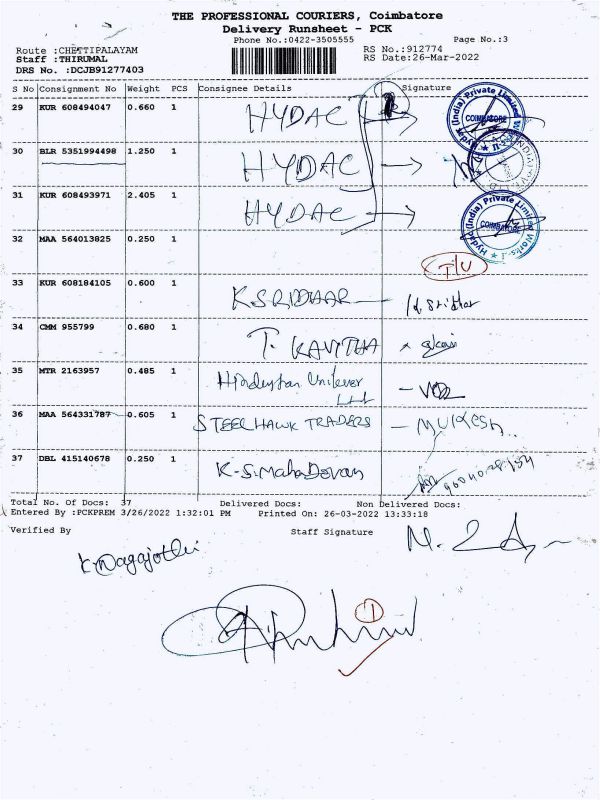 THE PROFESSIONAL COURIERS, Coimbatore
Delivery Runsheet - PCK
Phone No.:0422-3505555 Page No.:3
Route :CHETTIPALAYAM RS No.:912774
Staff :THIRUMAL RS Date:26-Mar-2022
DRS No. :DCJB91277403
S No Consignment No Weight PCS Consignee Details Signature
29 KUR 608494047 0.660 1 HYDAC
30 BLR 5351994498 1.250 1 HYDAC
31 KUR 608493971 2.405 1 HYDAC
COIMBATORE
Hydac (India) Private Limited
COIMBATORE
32 MAA 564013825 0.250 1 T/U
33 KUR 608184105 0.600 1 K.SRIDHAR
34 CMM 955799 0.680 1 T. KAVITHA
35 MTR 2163957 0.485 1 Hindustan Unilever
Ltd
36 MAA 564331787 0.605 1 STEELHAWK TRADERS - MUKESH
37 DBL 415140678 0.250 1 K-S.Mahadevan
Total No. Of Docs: 37 Delivered Docs: Non Delivered Docs:
Entered By :PCKPREM 3/26/2022 1:32:01 PM Printed On: 26-03-2022 13:33:18
Verified By Staff Signature
K. Nagajothi
1